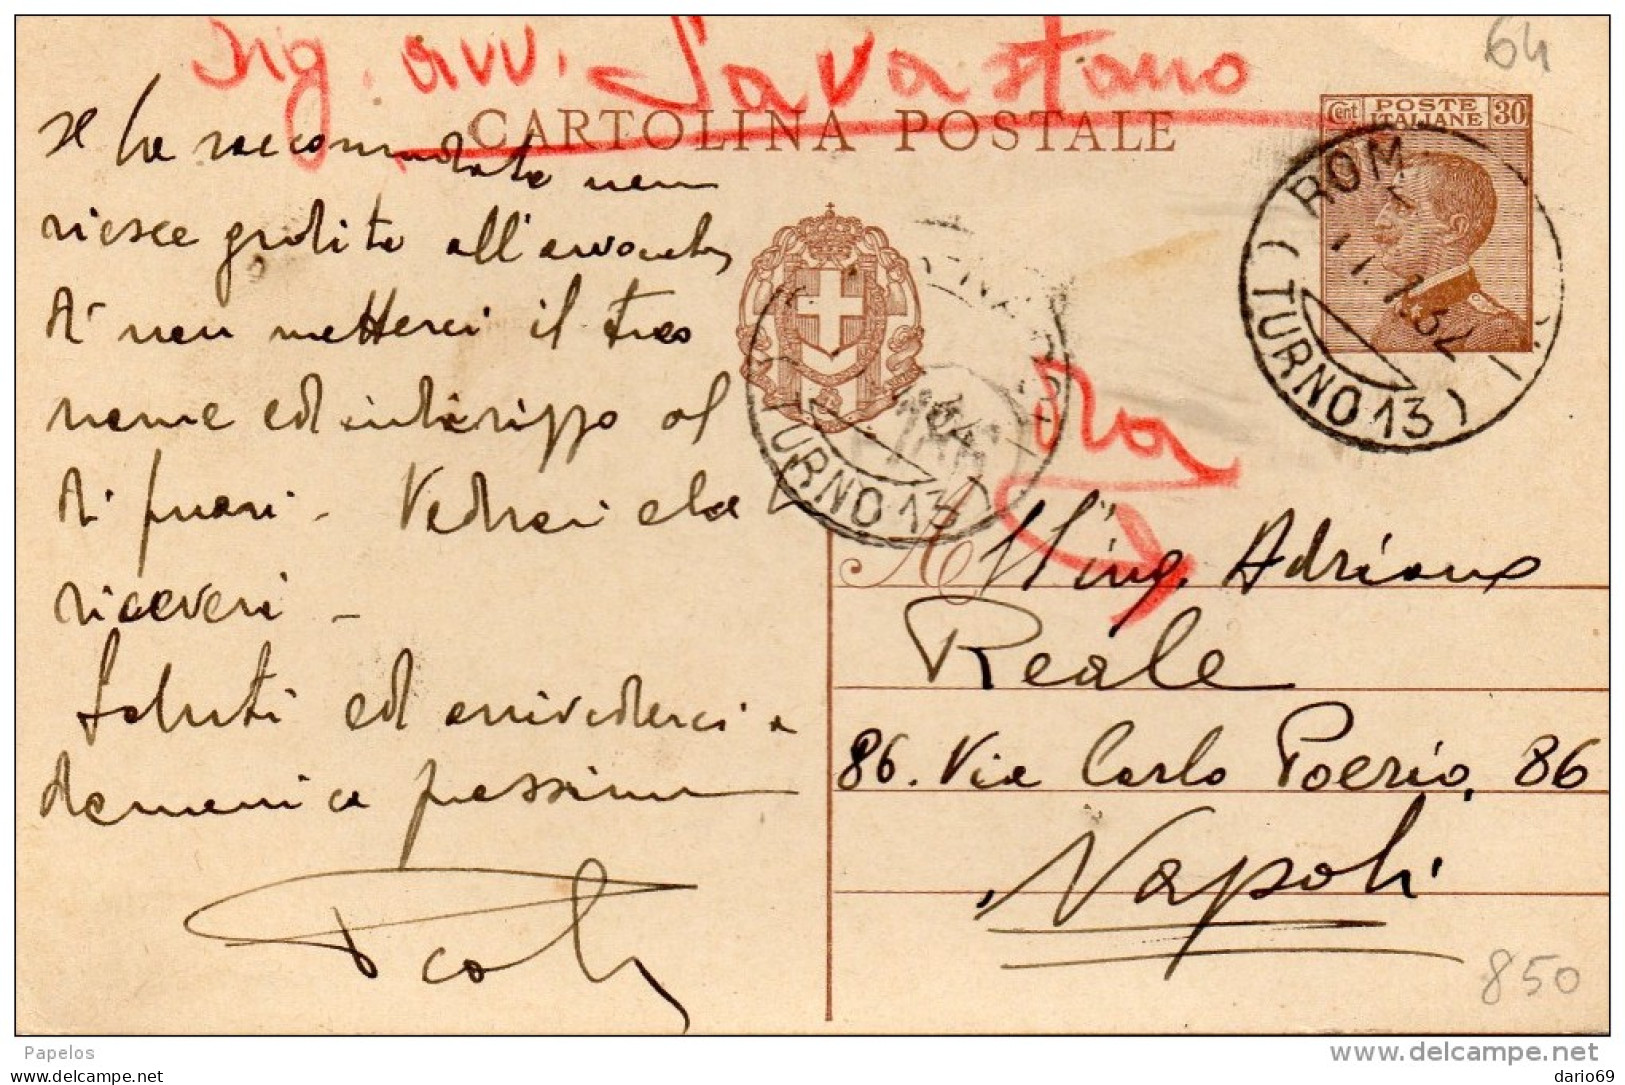 Sig. avv. Savastano
64
CARTOLINA POSTALE
Cent POSTE ITALIANE 30
ROM
TURNO 13
se la raccomandata non
riesce gradita all'avvocato
di non metterci il tuo
nome ed indirizzo al
di fuori - Vedrai che
riceverai -
Saluti ed arrivederci a
domenica prossima
TURNO 13
A All'ing. Adriano
Reale
86. Via Carlo Poerio, 86
Napoli
850
Papelos
www.delcampe.net
dario69